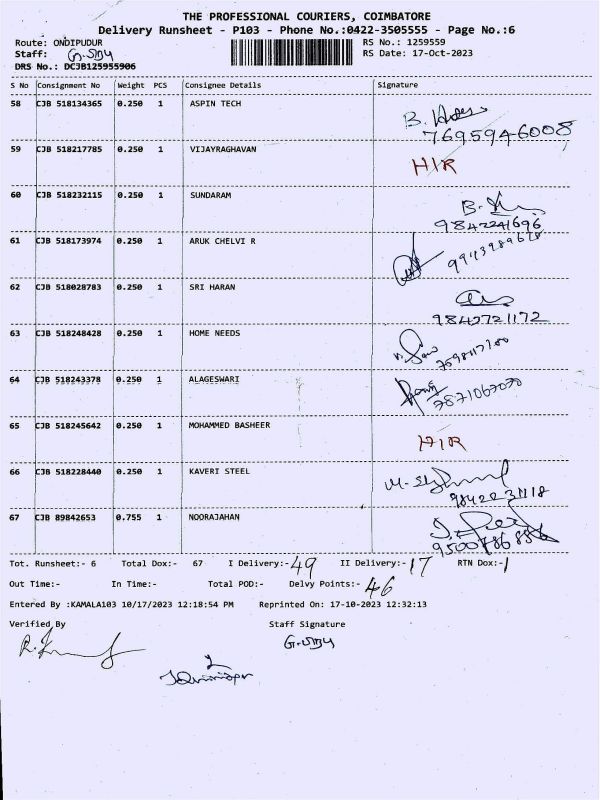 THE PROFESSIONAL COURIERS, COIMBATORE
Delivery Runsheet - P103 - Phone No.:0422-3505555 - Page No.:6
Route: ONDIPUDUR RS No.: 1259559
Staff: RS Date: 17-Oct-2023
DRS No.: DCJB125955906
S No Consignment No Weight PCS Consignee Details Signature
58 CJB 518134365 0.250 1 ASPIN TECH
7695946008
59 CJB 518217785 0.250 1 VIJAYRAGHAVAN
H/R
60 CJB 518232115 0.250 1 SUNDARAM
9842241696
61 CJB 518173974 0.250 1 ARUK CHELVI R
62 CJB 518028783 0.250 1 SRI HARAN
9842721172
63 CJB 518248428 0.250 1 HOME NEEDS
64 CJB 518243378 0.250 1 ALAGESWARI
65 CJB 518245642 0.250 1 MOHAMMED BASHEER
H/R
66 CJB 518228440 0.250 1 KAVERI STEEL
67 CJB 89842653 0.755 1 NOORAJAHAN
Tot. Runsheet:- 6 Total Dox:- 67 I Delivery:- 49 II Delivery:- 17 RTN Dox:- 1
Out Time:- In Time:- Total POD:- Delvy Points:- 46
Entered By :KAMALA103 10/17/2023 12:18:54 PM Reprinted On: 17-10-2023 12:32:13
Verified By Staff Signature